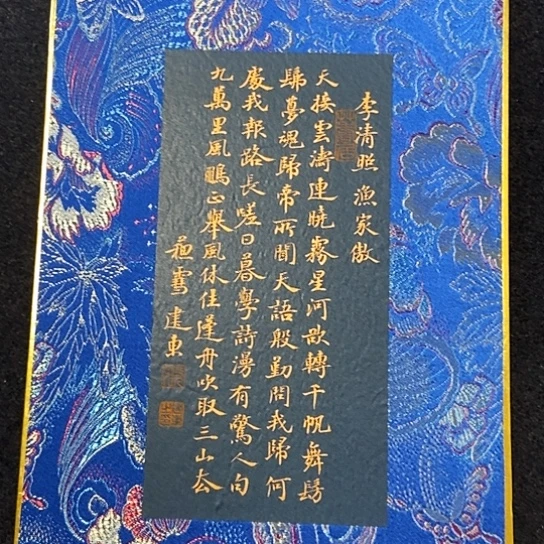 李清照 漁家傲
天接雲濤連曉霧星河欲轉千帆舞髣
髴夢魂歸帝所聞天語殷勤問我歸何
處我報路長嗟日暮學詩漫有驚人句
九萬里風鵬正舉風休住蓬舟吹取三山去
雪建東